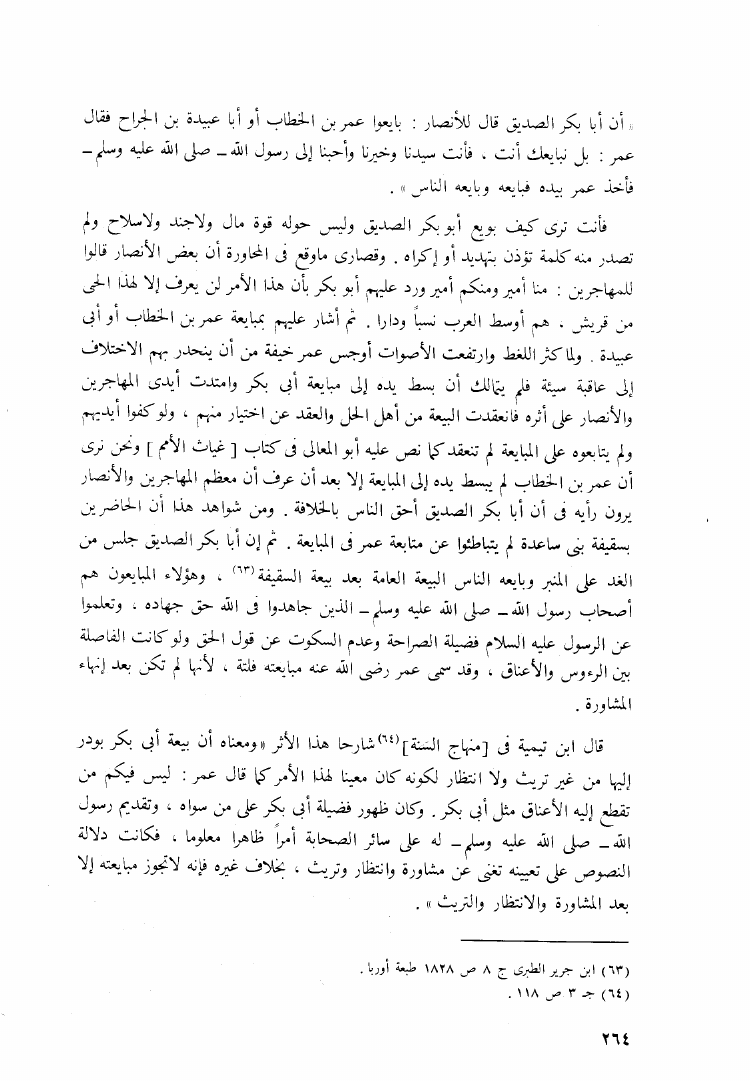 « أن أبا بكر الصديق قال للأنصار : بايعوا عمر بن الخطاب أو أبا عبيدة بن الجراح فقال
عمر : بل نبايعك أنت ، فأنت سيدنا وخيرنا وأحبنا إلى رسول الله ــ صلى الله عليه وسلم ــ
فأخذ عمر بيده فبايعه وبايعه الناس » .
فأنت ترى كيف بويع أبو بكر الصديق وليس حوله قوة مال ولاجند ولاسلاح ولم
تصدر منه كلمة تؤذن بتهديد أو إكراه . وقصارى ماوقع فى المحاورة أن بعض الأنصار قالوا
للمهاجرين : منا أمير ومنكم أمير ورد عليهم أبو بكر بأن هذا الأمر لن يعرف إلا لهذا الحى
من قريش ، هم أوسط العرب نسباً ودارا . ثم أشار عليهم بمبايعة عمر بن الخطاب أو أبى
عبيدة . ولما كثر اللغط وارتفعت الأصوات أوجس عمر خيفة من أن ينحدر بهم الاختلاف
إلى عاقبة سيئة فلم يتمالك أن بسط يده إلى مبايعة أبى بكر وامتدت أيدى المهاجرين
والأنصار على أثره فانعقدت البيعة من أهل الحل والعقد عن اختيار منهم ، ولو كفوا أيديهم
ولم يتابعوه على المبايعة لم تنعقد كما نص عليه أبو المعالى فى كتاب [ غياث الأمم ] ونحن نرى
أن عمر بن الخطاب لم يبسط يده إلى المبايعة إلا بعد أن عرف أن معظم المهاجرين والأنصار
يرون رأيه فى أن أبا بكر الصديق أحق الناس بالخلافة . ومن شواهد هذا أن الحاضرين
بسقيفة بنى ساعدة لم يتباطئوا عن متابعة عمر فى المبايعة . ثم إن أبا بكر الصديق جلس من
الغد على المنبر وبايعه الناس البيعة العامة بعد بيعة السقيفة(٦٣) ، وهؤلاء المبايعون هم
أصحاب رسول الله ــ صلى الله عليه وسلم ــ الذين جاهدوا فى الله حق جهاده ، وتعلموا
عن الرسول عليه السلام فضيلة الصراحة وعدم السكوت عن قول الحق ولو كانت الفاصلة
بين الرءوس والأعناق ، وقد سمى عمر رضى الله عنه مبايعته فلتة ، لأنها لم تكن بعد إنهاء
المشاورة .
قال ابن تيمية فى [منهاج السنة](٦٤) شارحا هذا الأثر «ومعناه أن بيعة أبى بكر بودر
إليها من غير تريث ولا انتظار لكونه كان معينا لهذا الأمر كما قال عمر : ليس فيكم من
تقطع إليه الأعناق مثل أبى بكر . وكان ظهور فضيلة أبى بكر على من سواه ، وتقديم رسول
الله ــ صلى الله عليه وسلم ــ له على سائر الصحابة أمراً ظاهرا معلوما ، فكانت دلالة
النصوص على تعيينه تغنى عن مشاورة وانتظار وتريث ، بخلاف غيره فإنه لاتجوز مبايعته إلا
بعد المشاورة والانتظار والتريث » .
(٦٣) ابن جرير الطبرى ج ٨ ص ١٨٢٨ طبعة أوربا .
(٦٤) جـ ٣ ص ١١٨ .
٢٦٤